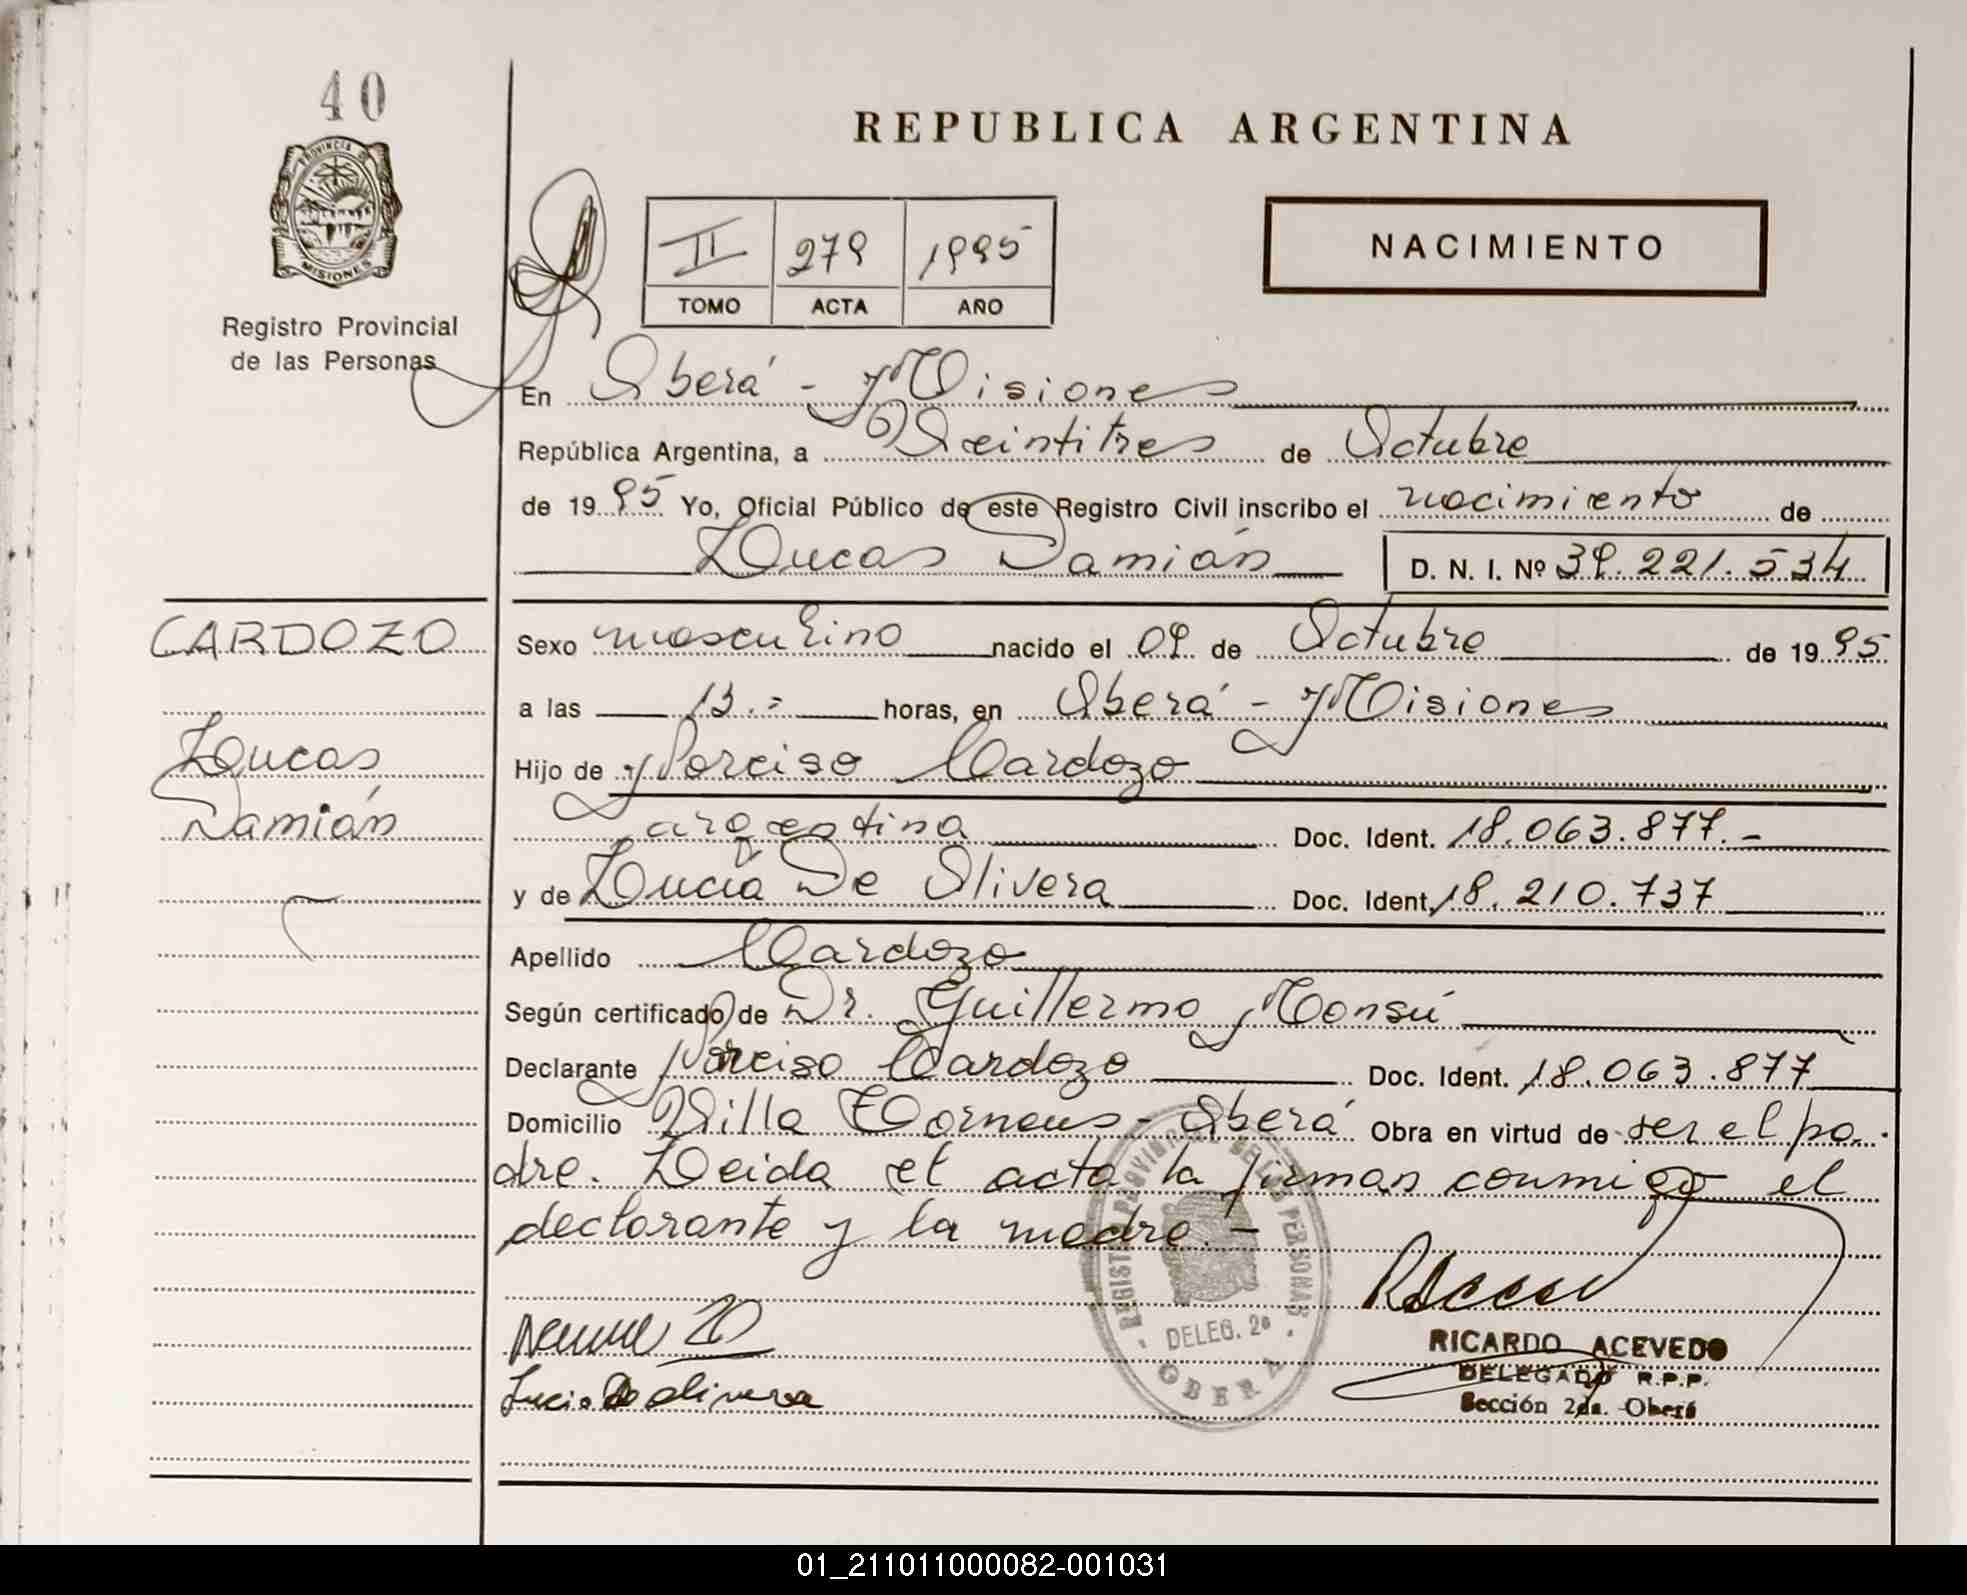 40
PROVINCIA DE
MISIONES
Registro Provincial
de las Personas
REPUBLICA ARGENTINA
II 279 1995
TOMO ACTA AÑO
NACIMIENTO
En Oberá - Misiones
República Argentina, a Veintitres de Octubre
de 1995 Yo, Oficial Público de este Registro Civil inscribo el nacimiento de
Lucas Damián D. N. I. Nº 39.221.534
CARDOZO
Lucas
Damián
Sexo masculino nacido el 09 de Octubre de 1995
a las 13.= horas, en Oberá - Misiones
Hijo de Narciso Cardozo
argentina Doc. Ident. 18.063.877.-
y de Lucía De Olivera Doc. Ident. 18.210.737
Apellido Cardozo
Según certificado de Dr. Guillermo Monsú
Declarante Narciso Cardozo Doc. Ident. 18.063.877
Domicilio Villa - Oberá Obra en virtud de ser el pa-
dre. Leida el acta la firman conmigo el
declarante y la madre.-
REGISTRO PROVINCIAL DE LAS PERSONAS
DELEG. 2ª
OBERA
Lucia De Olivera
RICARDO ACEVEDO
DELEGADO R.P.P.
Sección 2da. - Oberá
01_211011000082-001031